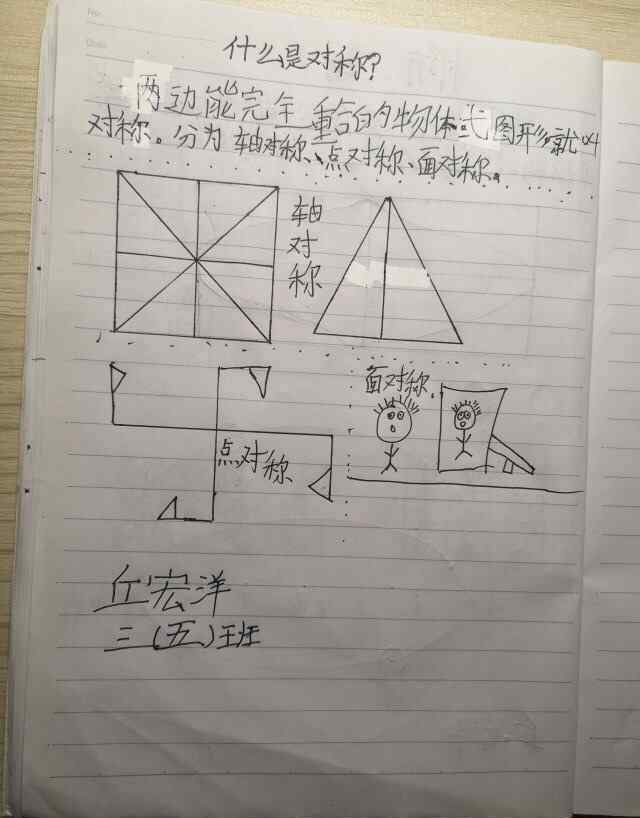 什么是对称?
两边能完全重合的物体或图形就叫
对称。分为轴对称、点对称、面对称。
轴对称
面对称.
点对称
丘宏洋
三(五)班